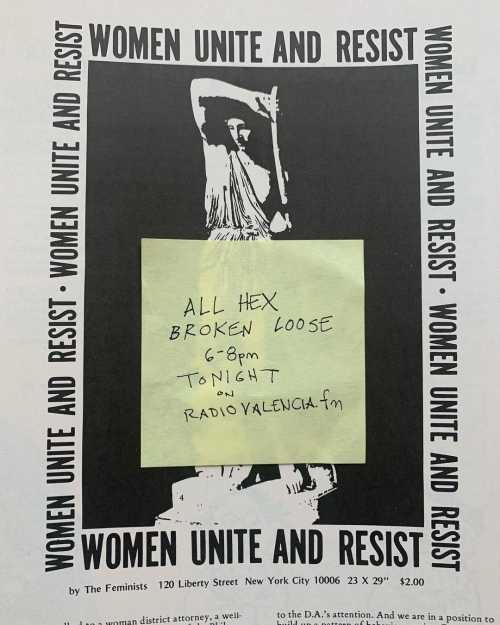 WOMEN UNITE AND RESIST
WOMEN UNITE AND RESIST • WOMEN UNITE AND RESIST
WOMEN UNITE AND RESIST • WOMEN UNITE AND RESIST
ALL HEX
BROKEN LOOSE
6-8pm
TONIGHT
ON
RADIOVALENCIA.fm
4
WOMEN UNITE AND RESIST
by The Feminists 120 Liberty Street New York City 10006 23 X 29" $2.00
to a woman district attorney, a well-
to the D.A.'s attention. And we are in a position to